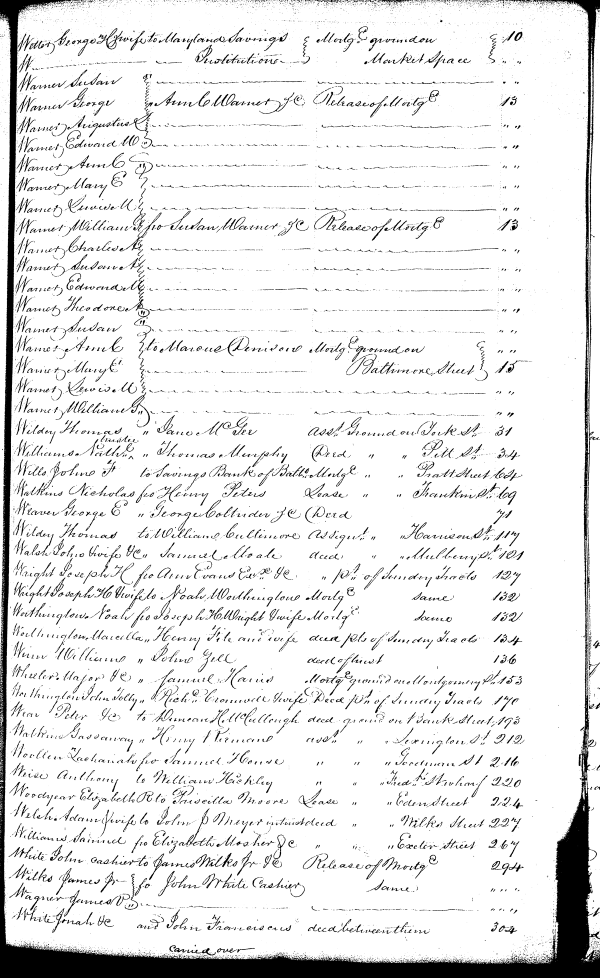 Welter George H & wife to Maryland Savings Mortge ground on 10
W Institution Market Space " "
Warner Susan " "
Warner George " Ann C Warner &C Release of Mortge 13
Warner Augustus " "
Warner Edward W " "
Warner Ann C " "
Warner Mary E " "
Warner Lewis M " "
Warner William G fro Susan Warner &C Release of Mortge 13
Warner Charles A " "
Warner Susan A " "
Warner Edward M " "
Warner Theodore A " "
Warner Susan " "
Warner Ann C to Marcus Denison Mortge ground on " "
Warner Mary E Baltimore Street 15
Warner Lewis M " "
Warner William G " "
Wildey Thomas " Jane McGee asst Ground on York St 31
Williams Nathl trustee " Thomas Murphy Deed " " Pitt St 34
Wills John F to Savings Bank of Balto Mortge " " Pratt Street 64
Watkins Nicholas fro Henry Peters Lease " " Franklin St 69
Weaver George E " George Coltrider &C Deed 71
Wildey Thomas to William Cultimore Assignt " " Harrison St 117
Walsh John & wife &C " Samuel Moale deed " " Mulberry St 121
Wright Joseph H fro Ann Evans Exx &C " pt of Sundry Tracts 127
Wright Joseph H & wife to Noah Worthington Mortge same 132
Worthington Noah fro Joseph H Wright & wife Mortge same 132
Worthington Marcella " Henry Fite and wife deed pts of Sundry Tracts 134
Wann William " John Zell deed of trust 136
Wheeler Major &C " Samuel Harris Mortge ground on Montgomery St 153
Worthington John Tolly " Richd Cromwell & wife Deed pt of Sundry Tracts 170
Wear Peter &C to Duncan H McCullough deed ground on Bank Street 193
Watkins Gassaway " Henry Kiemane asst " " Lexington St 212
Woollen Zachariah fro Samuel House " " " Goodman St 216
Weise Anthony to William Hickley " " " Fredk St wharf 220
Woodyear Elizabeth R to Priscilla Moore Lease " " Eden Street 224
Welsh Adam & wife to John J Meyer in trust deed " " Wilks Street 227
Williams Samuel fro Elizabeth Mosher &c " " " Exeter Street 267
White John cashier to James Wilks Jr &C Release of Mortge 294
Wilks James Jr fo John White Cashier same " "
Wagner James V " "
White Jonah &c and John Franciscus deed between them 304
carried over